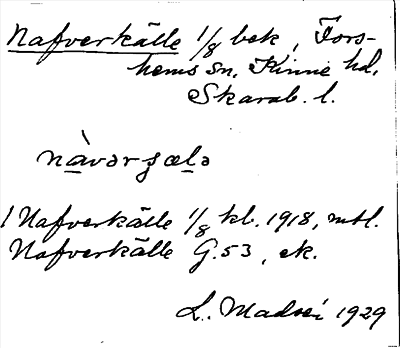 Nafverkälle 1/8 bek, Fors-
hems sn. Kinne hd.
Skarab. l.
nàvərʂælə
1 Nafverkälle 1/8 kl. 1918, mtl.
Nafverkälle G.53, ek.
L. 1929